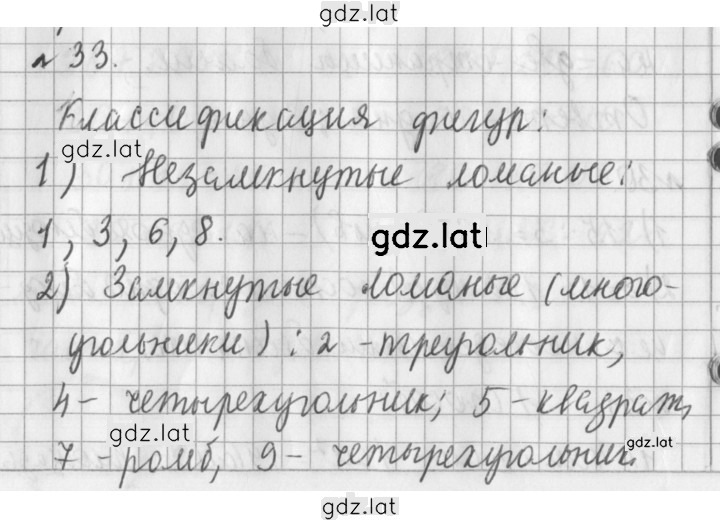 gdz.lat
№ 33.
Классификация фигур:
gdz.lat
1) Незамкнутые ломаные:
1, 3, 6, 8.
gdz.lat
2) Замкнутые ломаные (много-
угольники): 2 - треугольник,
4 - четырехугольник; 5 - квадрат,
gdz.lat
7 - ромб, 9 - четырехугольник.
gdz.lat
gdz.lat